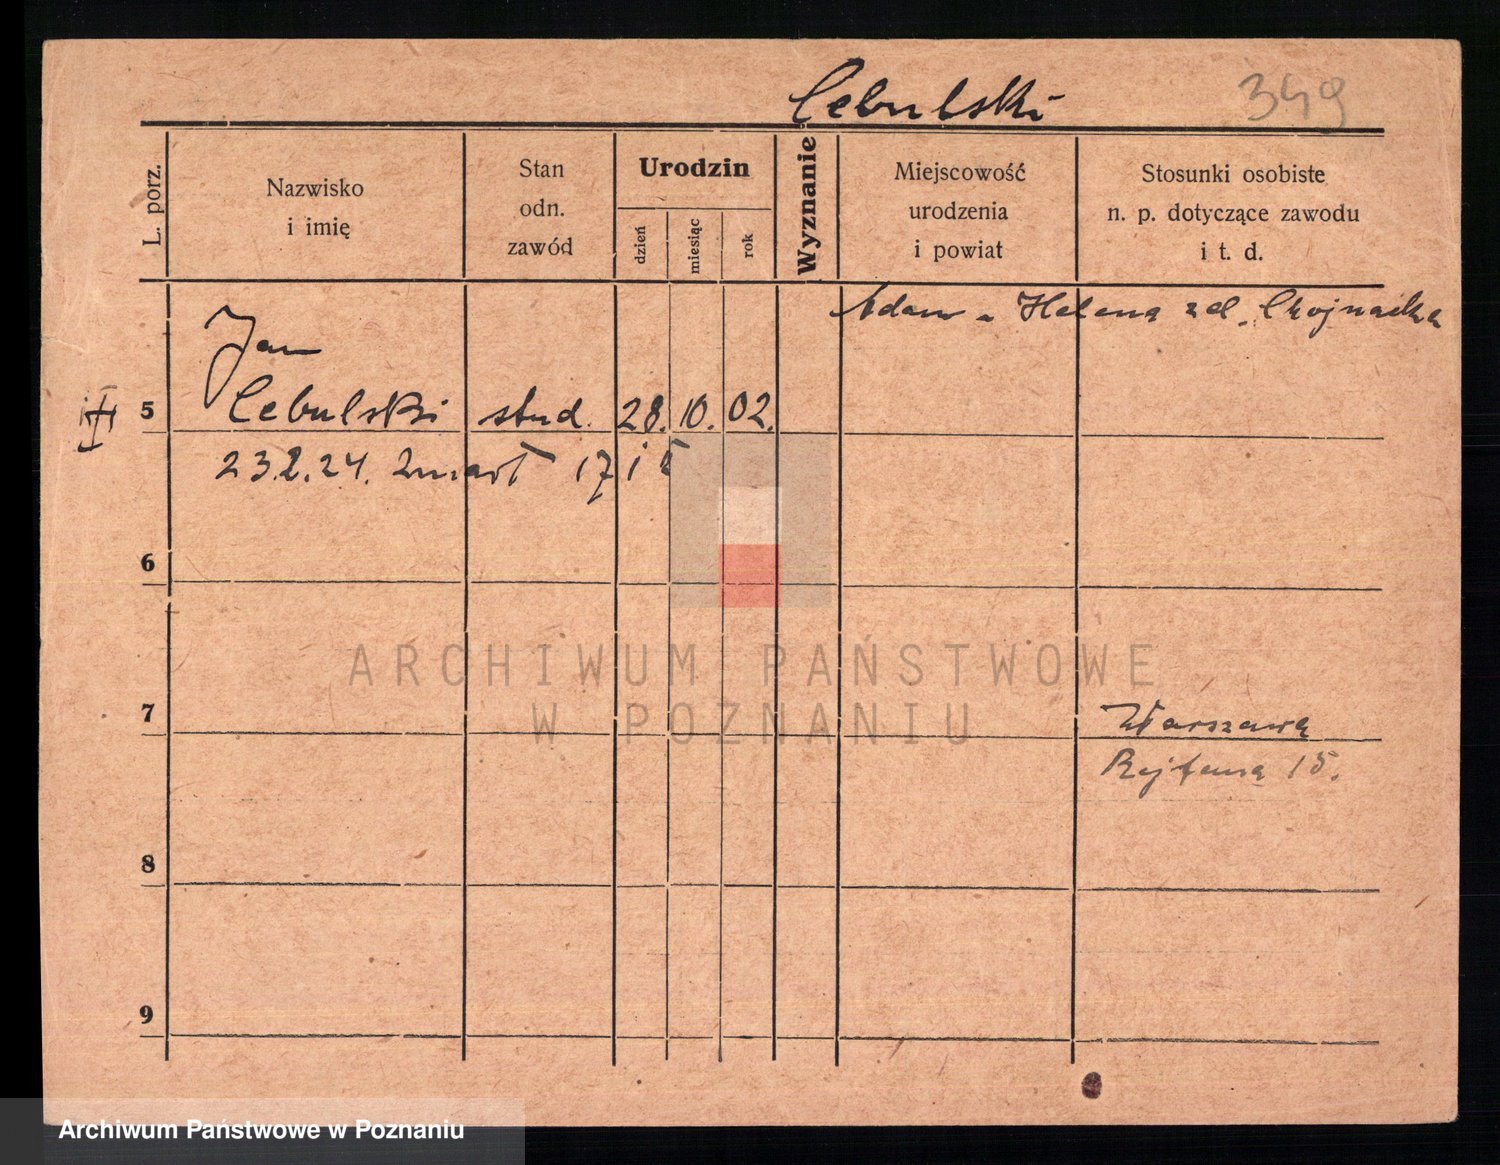 Cebulski 349
L. porz.
Nazwisko
i imię
Stan
odn.
zawód
Urodzin
dzień
miesiąc
rok
Wyznanie
Miejscowość
urodzenia
i powiat
Stosunki osobiste
n. p. dotyczące zawodu
i t. d.
Adam - Helena
Jan
5 Cebulski stud. 28. 10. 02.
23.2.24. Zmarł 17
6
ARCHIWUM PAŃSTWOWE
W POZNANIU
7 Warszawa
Rejtana 15.
8
9
Archiwum Państwowe w Poznaniu